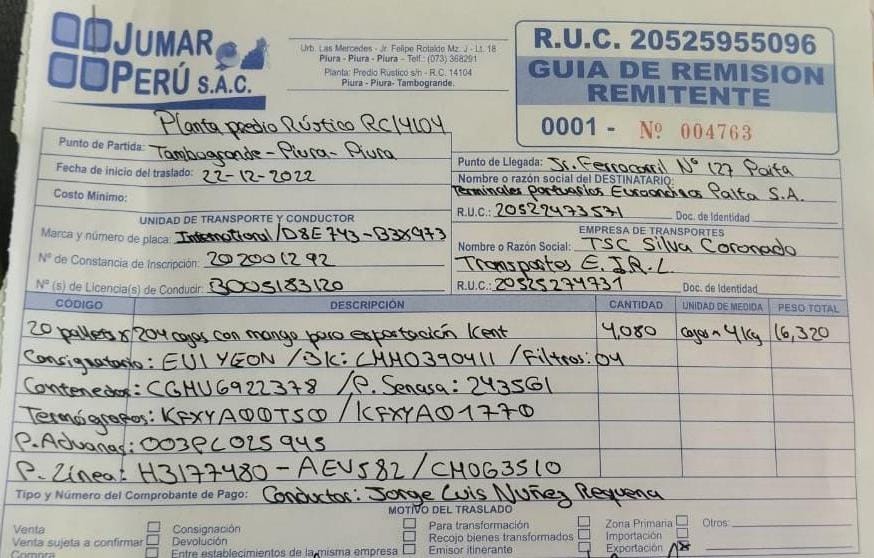 JUMAR
PERÚ S.A.C.
Urb. Las Mercedes - Jr. Felipe Rotalde Mz. J - Lt. 18
Piura - Piura - Piura - Telf.: (073) 368291
Planta: Predio Rústico s/n - R.C. 14104
Piura - Piura- Tambogrande.
R.U.C. 20525955096
GUIA DE REMISION
REMITENTE
0001 - Nº 004763
Planta predio Rústico RC14104
Punto de Partida: Tambogrande - Piura - Piura
Fecha de inicio del traslado: 22-12-2022
Costo Mínimo:
Punto de Llegada: Jr. Ferrocarril N° 127 Paita
Nombre o razón social del DESTINATARIO:
Terminales portuarios Euroandinos Paita S.A.
R.U.C.: 20522473571 Doc. de Identidad
UNIDAD DE TRANSPORTE Y CONDUCTOR
Marca y número de placa: International / D8E743-B3X973
Nº de Constancia de Inscripción: 202001292
Nº (s) de Licencia(s) de Conducir: B005183120
EMPRESA DE TRANSPORTES
Nombre o Razón Social: TSC Silva Coronado
Transportes E.I.R.L.
R.U.C.: 20525274731 Doc. de Identidad
CÓDIGO DESCRIPCIÓN CANTIDAD UNIDAD DE MEDIDA PESO TOTAL
20 pallets x 204 cajas con mango para exportación Kent 4,080 cajas 4Kg 16,320
Consignatario: EUI YEON / BK: CMM0390411 / Filtros: 04
Contenedor: CGMU6922378 / P. Senasa: 243561
Termógrafos: KFXYA00T50 / KFXYA01770
P. Aduanas: 003PL025945
P. Línea: H3177480 - AEV582 / CM063510
Tipo y Número del Comprobante de Pago: Conductor: Jorge Luis Nuñez Requena
MOTIVO DEL TRASLADO
Venta Consignación Para transformación Zona Primaria Otros:
Venta sujeta a confirmar Devolución Recojo bienes transformados Importación
Compra Entre establecimientos de la misma empresa Emisor itinerante Exportación